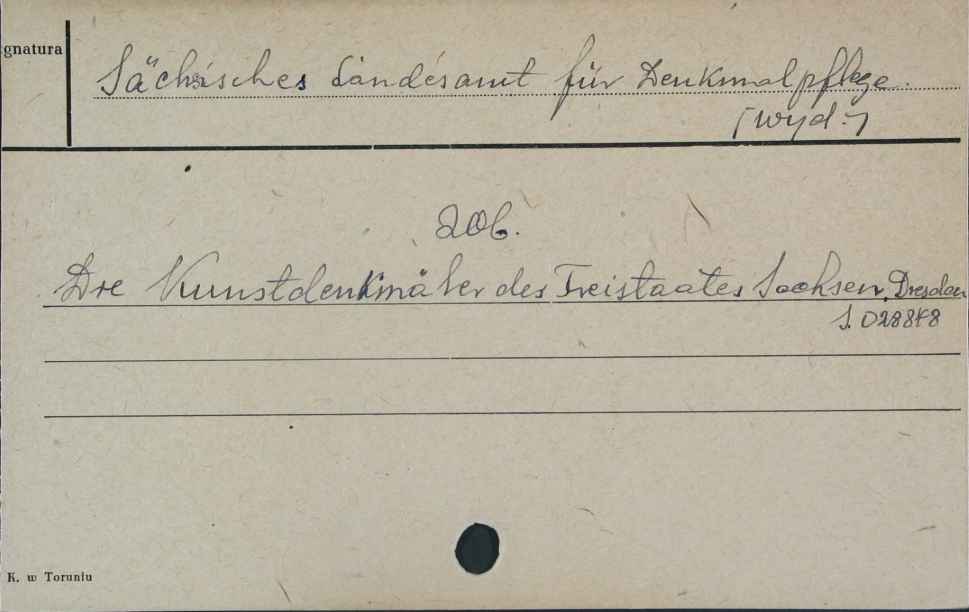 gnatura
Sächsisches Landesamt für Denkmalpflege.
(wyd.)
zob.
Die Kunstdenkmäler des Freistaates Sachsen, Dresden
S. 028848
K. w Toruniu